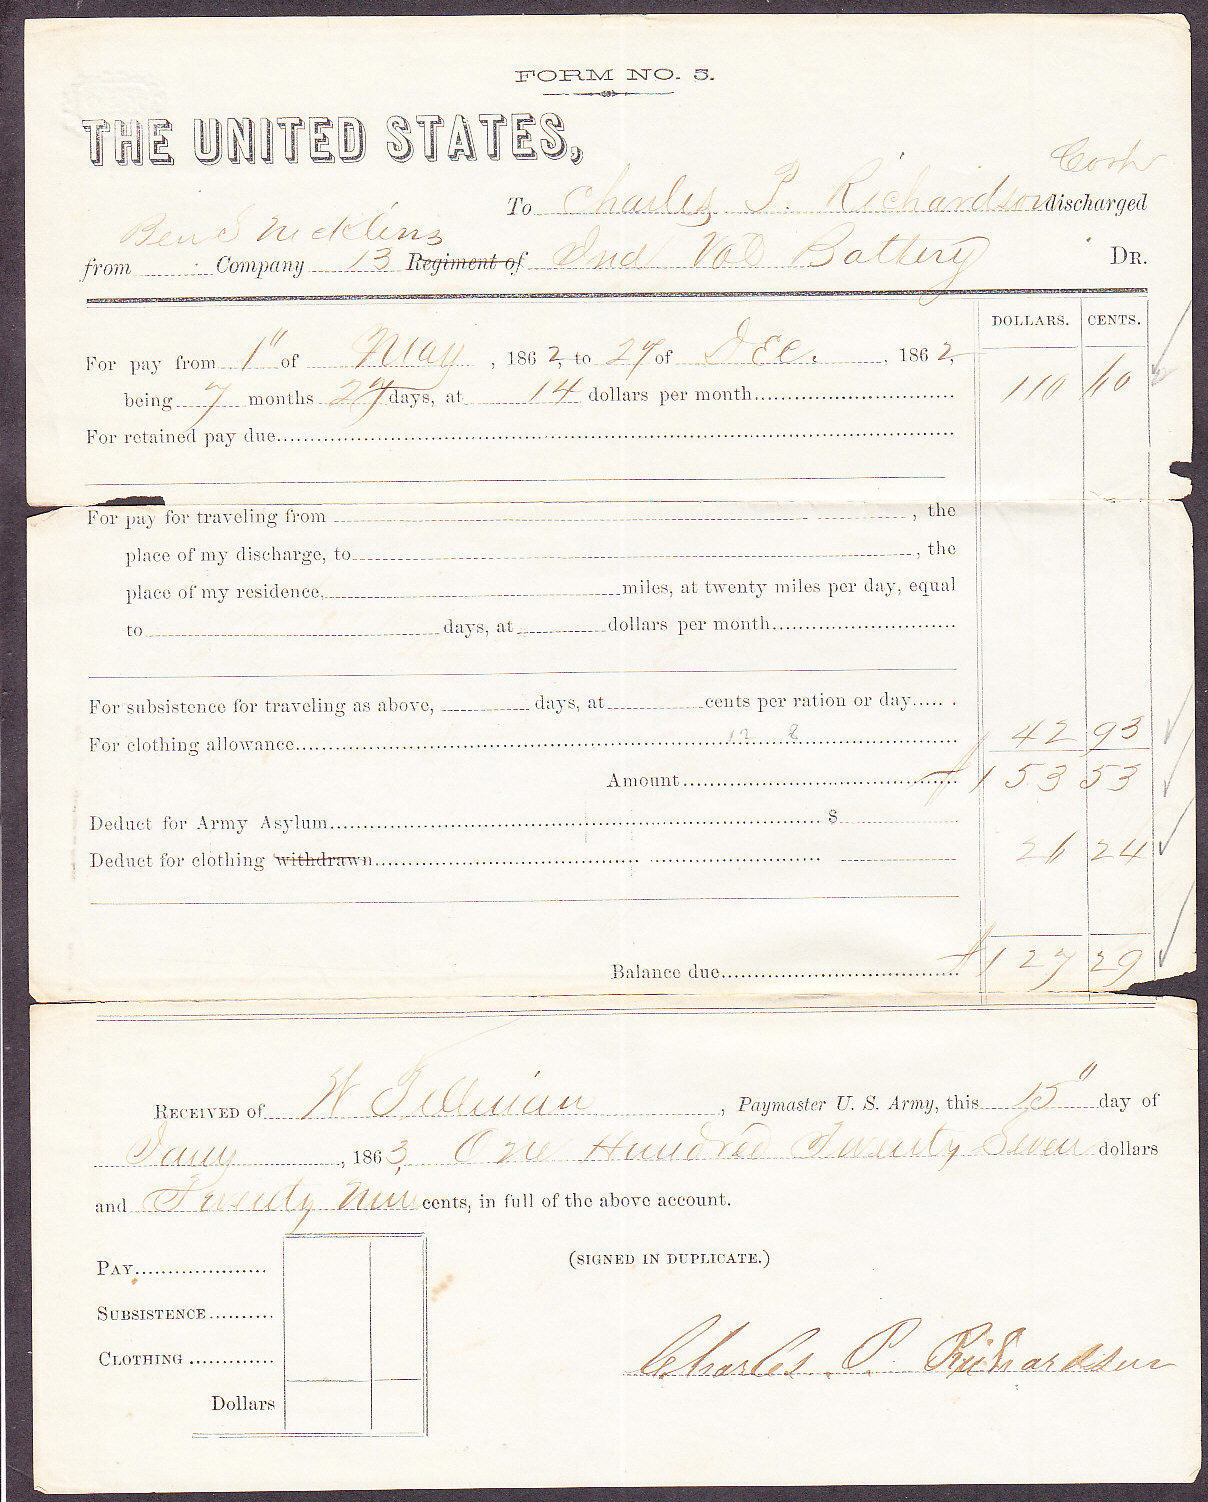 FORM NO. 5.
THE UNITED STATES,
Corp
To Charles P. Richardson discharged
Ben S Nicklins
from Company 13 Regiment of Ind Vol Battery DR.
DOLLARS. CENTS.
For pay from 1" of May, 1862, to 27 of Dec., 1862,
being 7 months 27 days, at 14 dollars per month 110 60
For retained pay due
For pay for traveling from , the
place of my discharge, to , the
place of my residence, miles, at twenty miles per day, equal
to days, at dollars per month
For subsistence for traveling as above, days, at cents per ration or day
For clothing allowance 12 8 42 93
Amount $153 53
Deduct for Army Asylum $
Deduct for clothing withdrawn 26 24
Balance due $127 29
RECEIVED of W Tillman, Paymaster U. S. Army, this 15" day of
Jany, 1863, One Hundred Twenty Seven dollars
and Twenty Nine cents, in full of the above account.
(SIGNED IN DUPLICATE.)
PAY
SUBSISTENCE
CLOTHING
Dollars
Charles P. Richardson